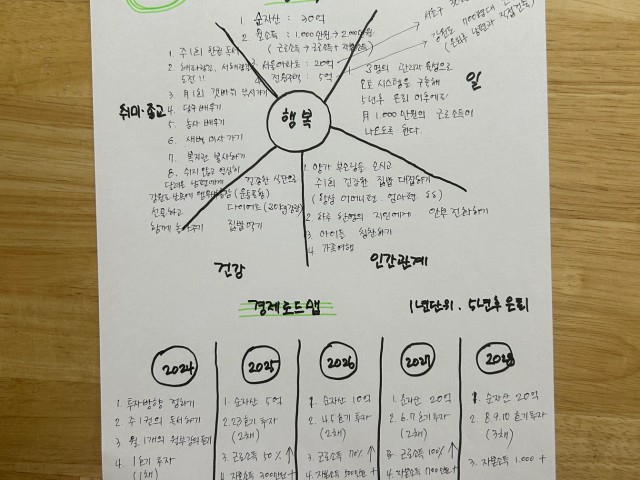 1. 순자산 : 30억
2. 월소득 : 1,000만원 → 2,000만원
(근로소득 → 근로소득 + 자본소득)
3. 서울아파트 : 20억
4. 전원주택 : 5억
서초구
강원도 700평대
(은퇴후 남편과 직접건축)
취미·종교
1. 주1회 완독 독서
3. 月1회
4. 당구 배우기
5. 농사 배우기
6. 새벽 미사 가기
7. 복지관 봉사하기
8. 쉬지 않고 열심히
함께 놀아주기
행복
일
3명의 관리자 육성으로
오토 시스템을 구축해
5년후 은퇴 이후에도
月 1,000만원의 근로소득이
나오도록 한다.
건강
건강한 식단과
(운동포함)
다이어트
집밥 먹기
인간관계
1. 양가 부모님을 모시고
주1회 건강한 집밥 대접하기
(항상 어머니편, 엄마편 ㅎㅎ)
2. 하루 한명의 지인에게 안부 전화하기
3. 아이들 칭찬하기
4. 가족여행
경제로드맵
1년단위. 5년후 은퇴
2024
1. 투자방향 정하기
2. 주1권의 독서하기
3. 월 1개의 듣기
4. 1호기 투자
(1채)
2025
1. 순자산 5억
2. 2.3호기 투자
(2채)
3. 근로소득 50% ↑
4. 자본소득 300만원 +
2026
1. 순자산 10억
2. 4.5호기 투자
(2채)
3. 근로소득 70% ↑
4. 자본소득 500만원 +
2027
1. 순자산 20억
2. 6.7호기 투자
(2채)
3. 근로소득 100% ↑
4. 자본소득 700만원 +
2028
1. 순자산 20억
2. 8.9.10호기 투자
(3채)
3. 자본소득 1,000 +